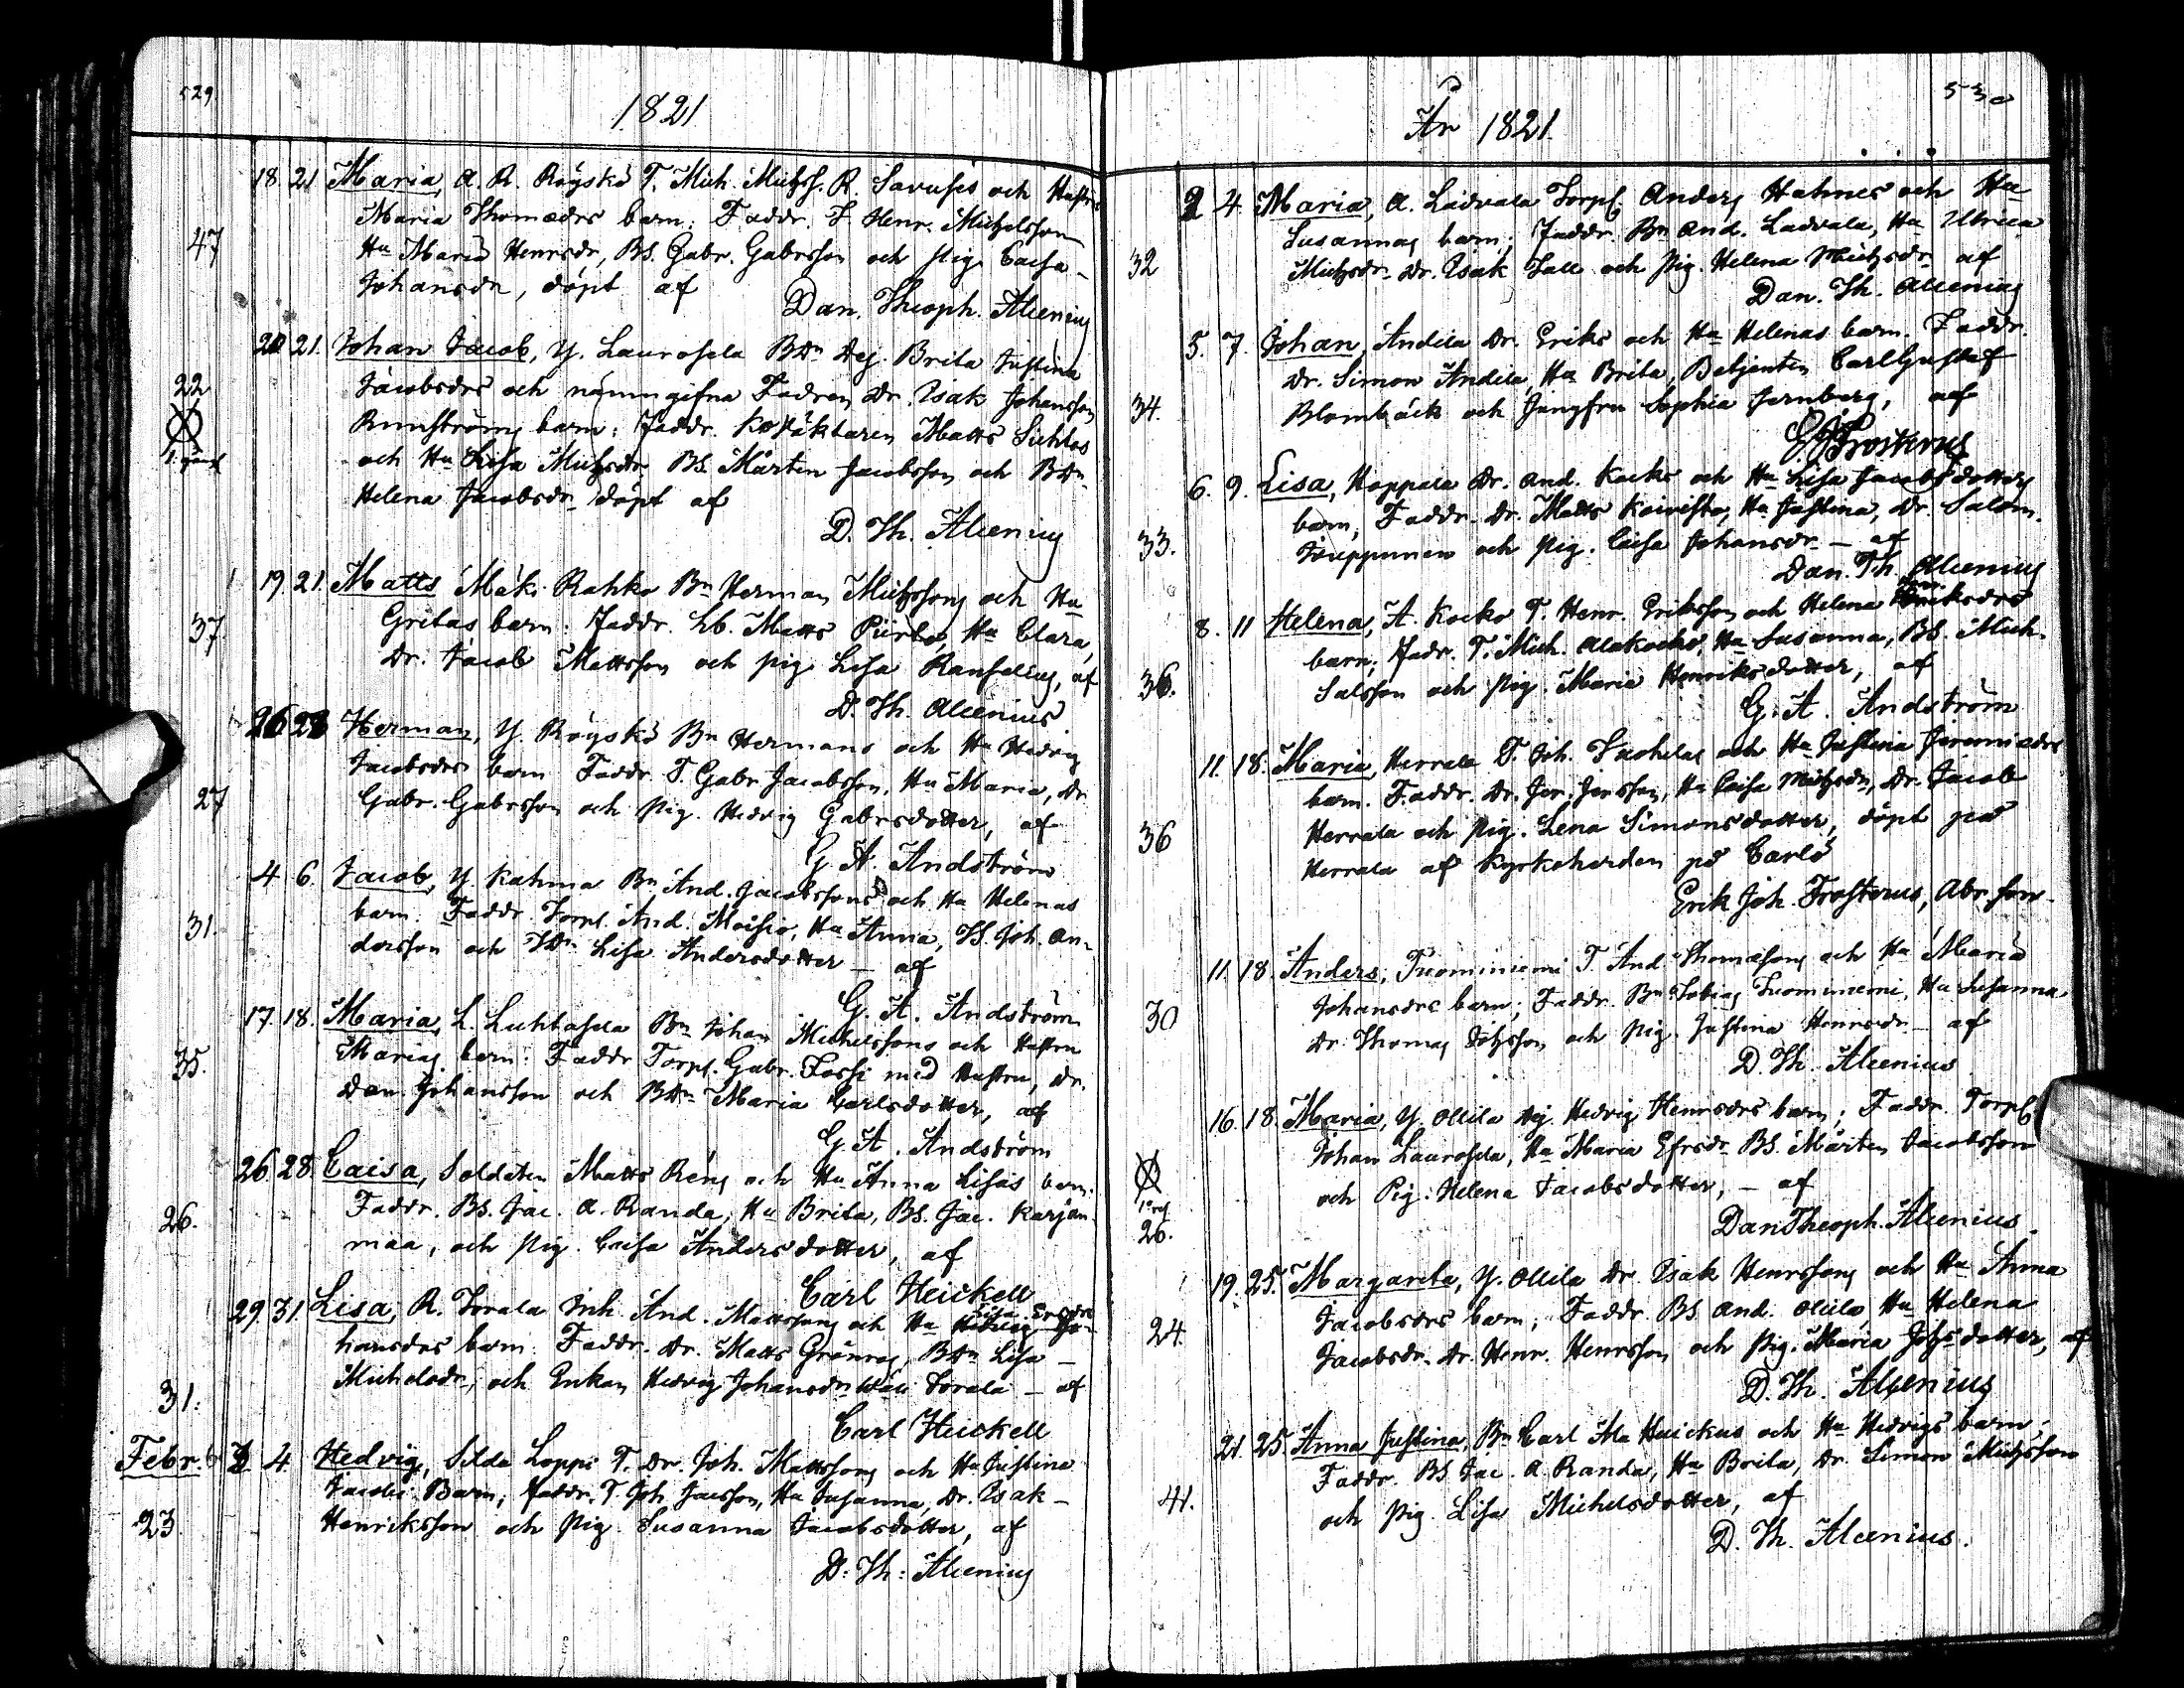 529.
1821
18. 21 Maria, A. R. Röyskö T. Mich. Michss. R. Savufes och Hustr.
Maria Thomædrs barn: Faddr. T. Henr. Michelsson
47 Hu Maria Henrsdr, BS. Gabr. Gabrsson och pig. Caisa
Johansdr, döpt af
Dan. Theoph. Alcenius
20 21. Johan Jacob, Y. Laurosela BDr Dej. Brita Justina
22 Jacobsdrs och nämngifna Fadren Dr. Isak Johansson
Runströms barn: Faddr. Matts Sichlos
1. gång och Hu Lisa Michsdr BS. Mårten Jacobsson och BDr
Helena Jacobsdr döpt af
D. Th. Alcenius
19. 21. Matts Mäki Rahko Bn Herman Michssons och Hu
37. Gretas barn: Faddr. Lb. Matts Piirto, Hu Clara,
Dr. Jacob Mattsson och pig Lisa Ranselius, af
D. Th. Alcenius
26 28 Herman, Y. Röyskö Bn Hermans och Hu Hedvig
Jacobsdrs barn Faddr. T. Gabr Jacobsson, Hu Maria, Dr.
27 Gabr. Gabrsson och pig. Hedvig Gabrsdotter, af
G. A. Andström
4 6. Jacob, Y. Kahma Bn And. Jacobssons och Hu Helenas
31. barn. Faddr. Torp. And. Moisio, Hu Anna, TS. Joh. An-
dersson och TDr Lisa Andersdotter – af
G. A. Andström
17. 18. Maria, L. Luhtasela Bn Johan Michelssons och Hustru
35. Marias barn: Faddr Torp. Gabr. Fossi med Hustru, Dr.
Dan. Johansson och BDr Maria Carlsdotter, af
G. A. Andström
26. 28. Caisa, Soldaten Matts Reng och Hu Anna Lisas barn.
26. Faddr. BS. Jac. A. Randa, Hu Brita, BS. Jac. Karjan-
maa, och pig. Caisa Andersdotter, af
Carl Heickell
29. 31. Lisa, R. Torala Inh. And. Mattssons och Hu Lisa Ersdrs
hansdrs barn: Faddr. Dr. Matts Grönros, BDr Lisa –
31. Michelsdr, och Enkan Hedvig Johansdr Wäli Torala – af
Carl Heickell
Febr. 2 4. Hedvig, Silda Loppi T. Dr. Joh. Mattssons och Hu Justina
Jacobs Barn; Faddr. T. Joh Jacsson, Hu Susanna, Dr. Isak –
23 Henriksson och pig. Susanna Jacobsdotter, af
D. Th: Alcenius
530
År 1821.
2 4. Maria, A. Ladvala Torp. Anders Hahnes och Hu
Susannas barn; Faddr. Bn And. Ladvala, Hu Ulrica
32 Michsdr. Dr. Isak Tall och pig. Helena Michsdr af
Dan. Th. Alcenius
5. 7. Johan, Andila Dr. Eriks och Hu Helenas barn. Faddr.
Dr. Simon Andila, Hu Brita, Betjenten Carl Gustaf
34. Blombäck och Jungfru Sophia Jernberg, af
E. J. Frosterus
6. 9. Lisa, Hoppala Dr. And. Kocks och Hu Lisa Jacobsdotters
barn; Faddr. Dr. Matts Koivisto, Hu Justina, Dr. Salom.
33. Jouppunen och pig. Caisa Johansdr. – af
Dan. Th. Alcenius
8. 11 Helena, A. Kocko T. Henr. Eriksson och Helena Henriksdrs
barn; Fadr. T. Mich. Alakocko, Hu Susanna, BS. Mich.
36. Salsson och pig. Maria Henriksdotter, af
G. A. Andström
11. 18. Maria, Herrala T. Joh. Tachelas och Hu Justina Jeremiædrs
barn. Faddr. Dr. Jer. Jersson, Hu Caisa Michsdr, Dr. Jacob
36 Herrala och pig. Lena Simonsdotter, döpt på
Herrala af Kyrkoherden på Carlö
Erik Joh. Frosterus, Abr. son.
11. 18. Anders, Tuominiemi T. And. Thomæsons och Hu Maria
30 Johansdrs barn; Faddr. Bn Tobias Tuominiemi, Hu Susanna,
Dr. Thomas Johsson och pig. Justina Henrsdr – af
D. Th. Alcenius
16. 18. Maria, Y. Ollila Dej. Hedvig Henrsdrs barn; Faddr. Torp.
Johan Laurosela, Hu Maria Efrsdr. BS. Mårten Jacobsson
och Pig. Helena Jacobsdotter, – af
26. Dan Theoph. Alcenius
19. 25. Margareta, Y. Ollila Dr. Isak Henrssons och Hu Anna
Jacobsdrs barn; Faddr. BS. And. Ollila, Hu Helena
24. Jacobsdr. Dr. Henr. Henrsson och pig. Maria Johsdotter, af
D. Th. Alcenius
21. 25. Anna Justina, Bn Carl Ala Huickus och Hu Hedvigs barn;
Faddr. BS. Jac. A. Randa, Hu Brita, Dr. Simon Michsson
41. och pig. Lisa Michelsdotter, af
D. Th. Alcenius.